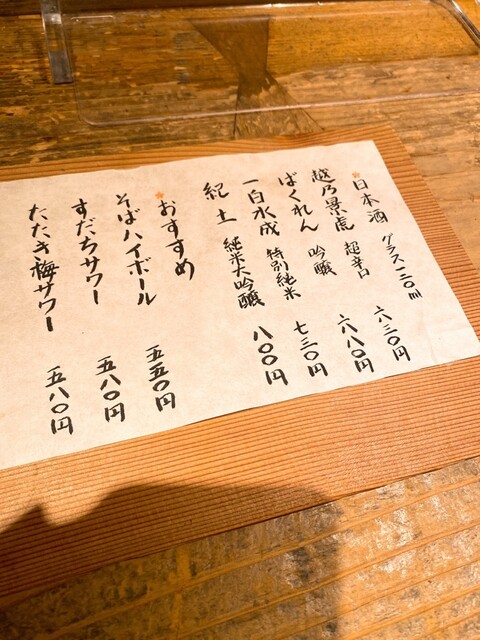 日本酒 グラス一二〇ml
越乃景虎 超辛口 六三〇円
ばくれん 吟醸 六八〇円
一白水成 特別純米 七三〇円
紀土 純米大吟醸 八〇〇円
おすすめ
そばハイボール 五五〇円
すだちサワー 五八〇円
たたき梅サワー 五八〇円